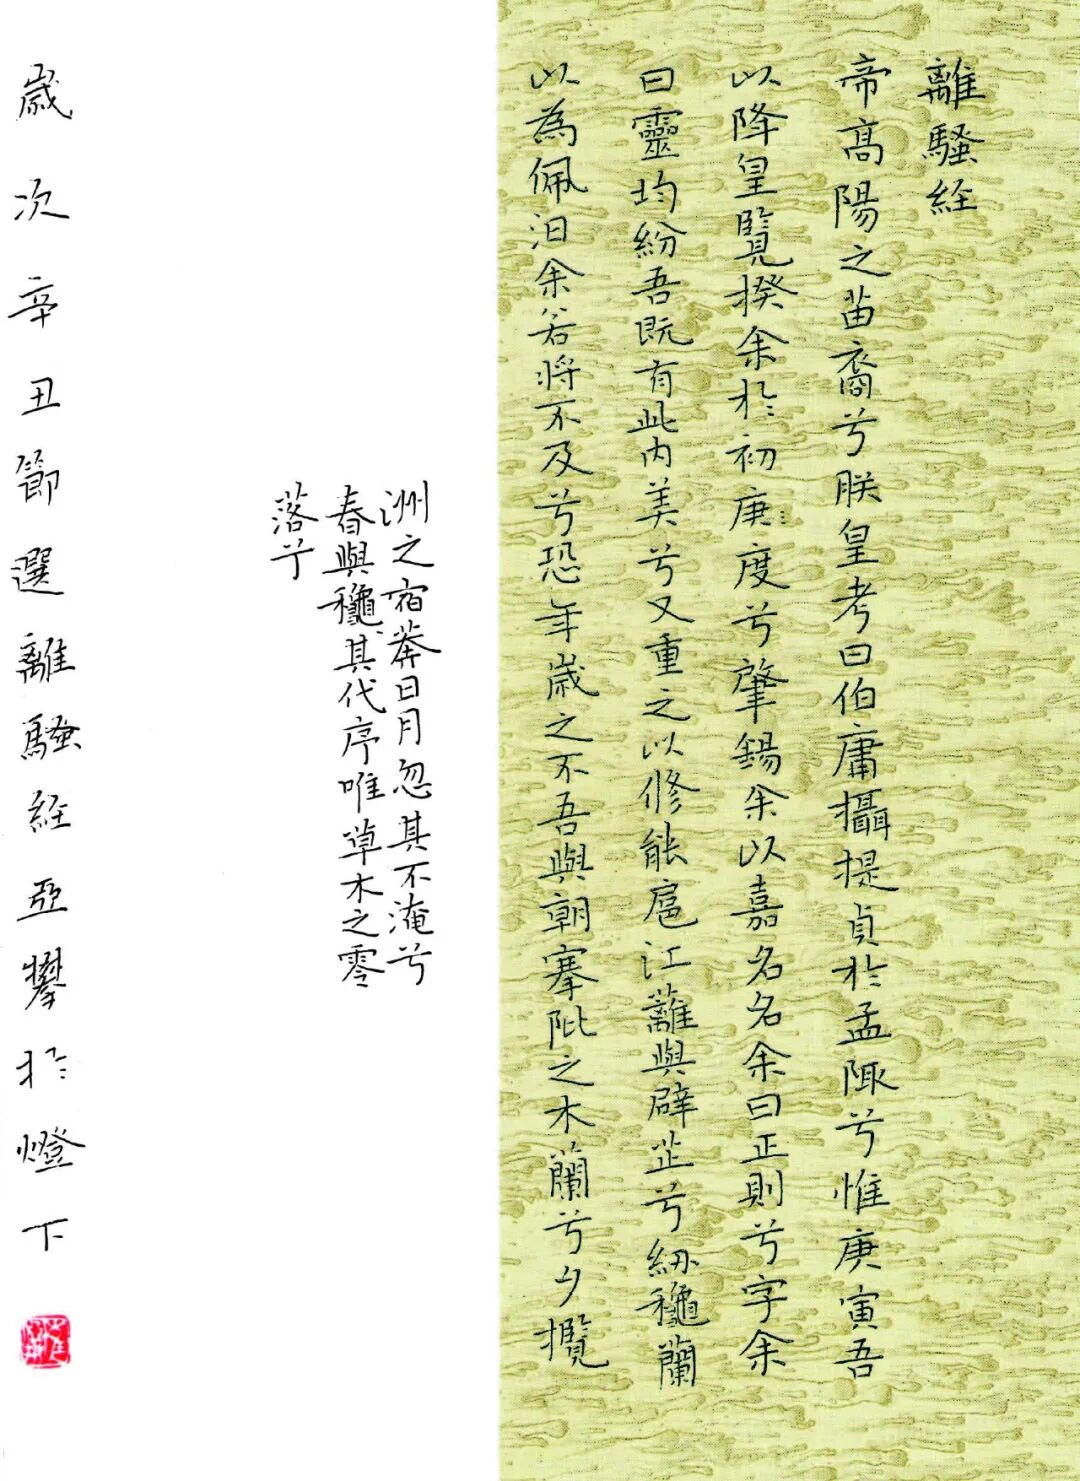 離騷経
帝高陽之苗裔兮朕皇考曰伯庸攝提貞於孟陬兮惟庚寅吾
以降皇覽揆余於初庚度兮肇錫余以嘉名名余曰正則兮字余
曰靈均紛吾既有此内美兮又重之以修能扈江蘺與辟芷兮紉龝蘭
以為佩汩余若將不及兮恐年歲之不吾與朝搴阰之木蘭兮夕攬
洲之宿莽日月忽其不淹兮
春與龝其代序唯草木之零
落兮
歲次辛丑節選離騷経亞攀於燈下